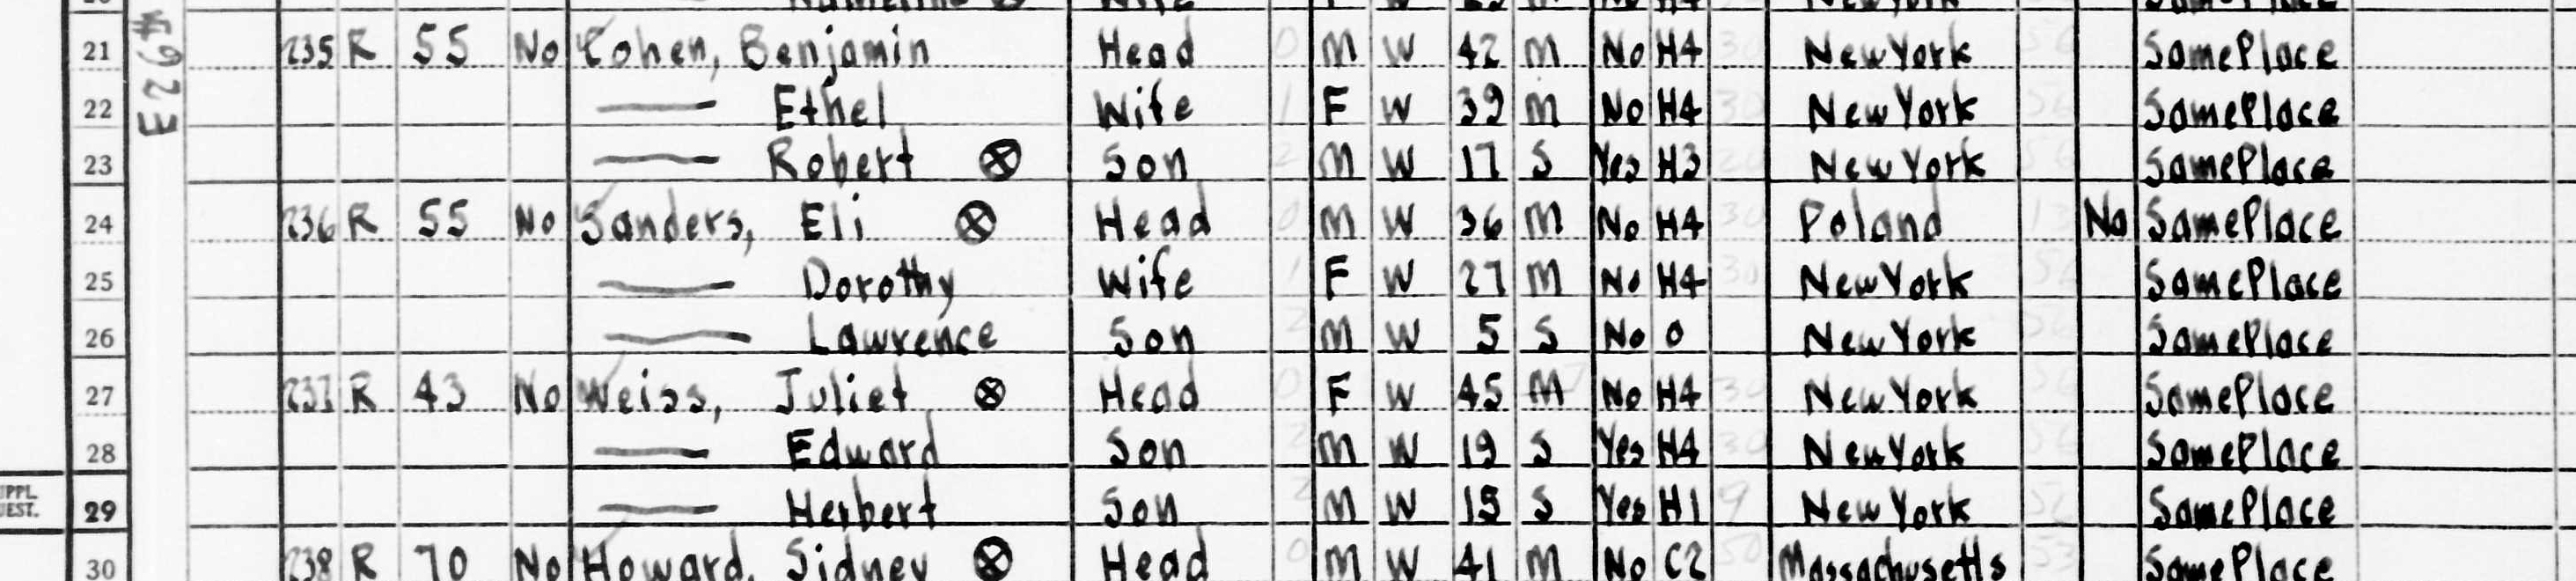 21 235 R 55 No Cohen, Benjamin Head 0 M W 42 M No H4 30 New York 56 Same Place
22 — Ethel Wife 1 F W 39 M No H4 30 New York 56 Same Place
23 — Robert ⊗ Son 2 M W 17 S Yes H3 20 New York 56 Same Place
24 236 R 55 No Sanders, Eli ⊗ Head 0 M W 36 M No H4 30 Poland 13 No Same Place
25 — Dorothy Wife 1 F W 27 M No H4 30 New York 56 Same Place
26 — Lawrence Son 2 M W 5 S No 0 New York 56 Same Place
27 237 R 43 No Weiss, Juliet ⊗ Head 0 F W 45 M 7 No H4 30 New York 56 Same Place
28 — Edward Son 2 M W 19 S Yes H4 30 New York 56 Same Place
SUPPL. QUEST. 29 — Herbert Son 2 M W 15 S Yes H1 9 New York 56 Same Place
30 238 R 70 No Howard, Sidney ⊗ Head 0 M W 41 M No C2 50 Massachusetts 53 Same Place